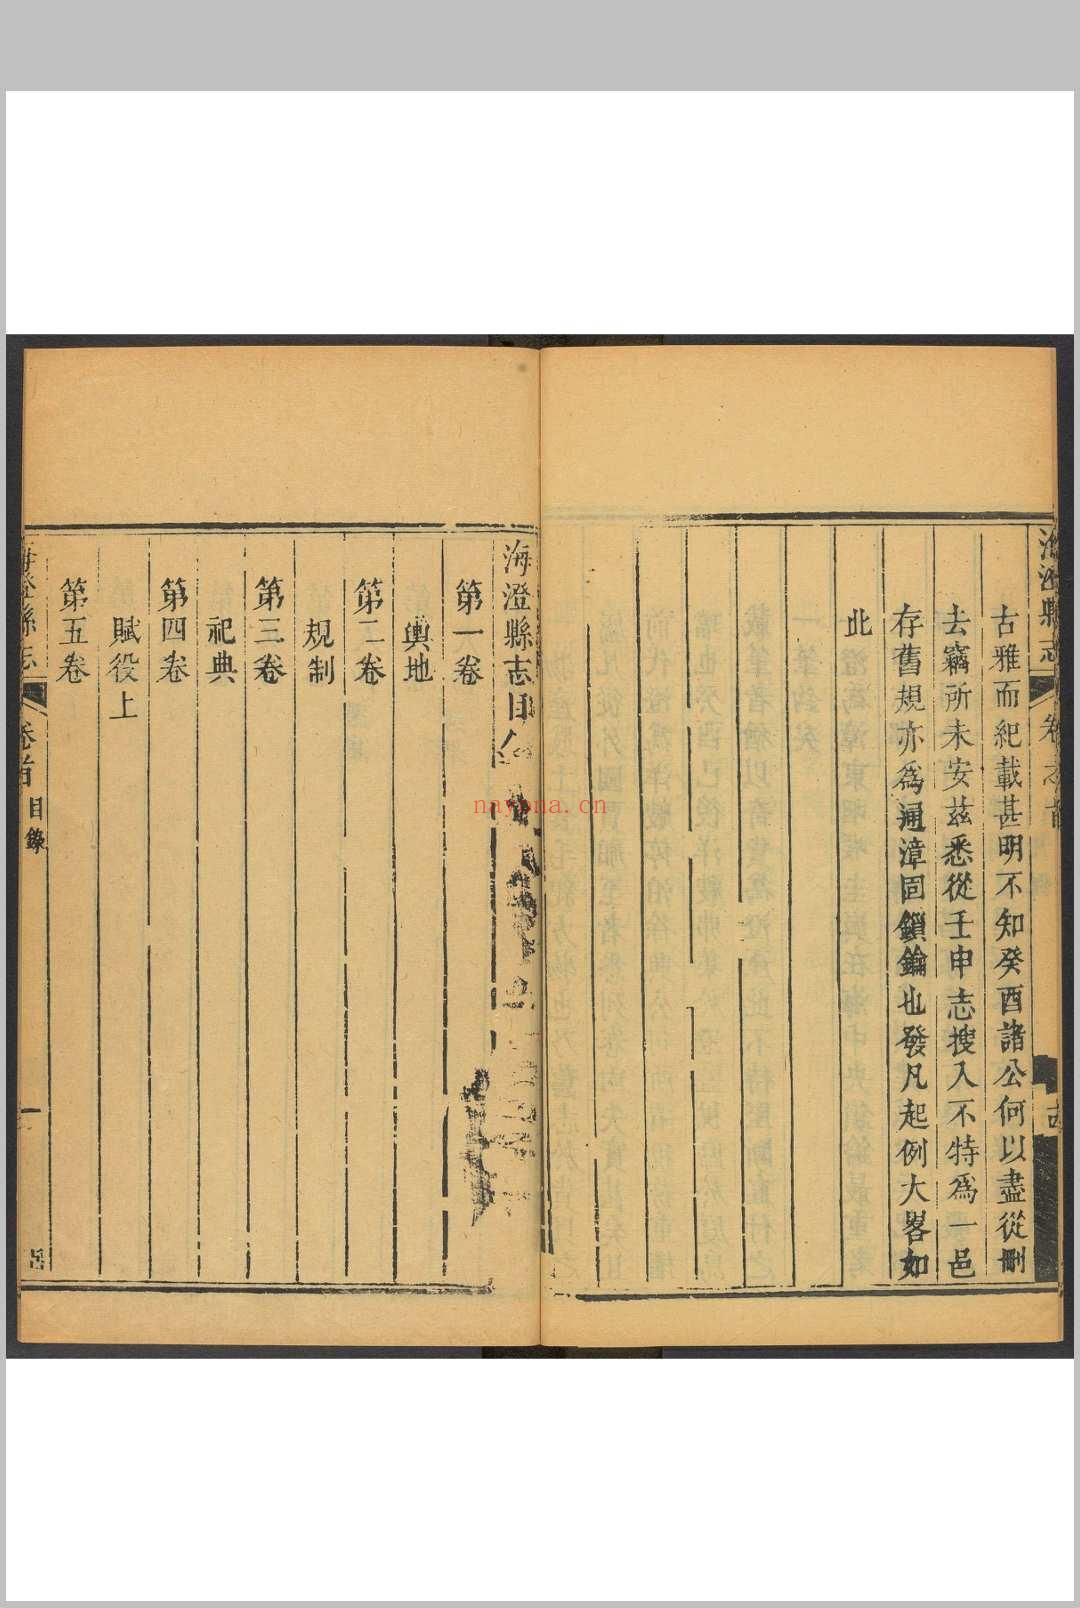 海澄縣志
卷之首
古雅而紀載甚明不知癸酉諸公何以盡從刪
去竊所未安茲悉從壬申志搜入不特為一邑
存舊規亦為通漳固鎖鑰也發凡起例大畧如
此
海澄縣志目
第一卷
輿地
第二卷
規制
第三卷
祀典
第四卷
賦役上
第五卷
海澄縣志
卷首
目錄
一
nayona.cn